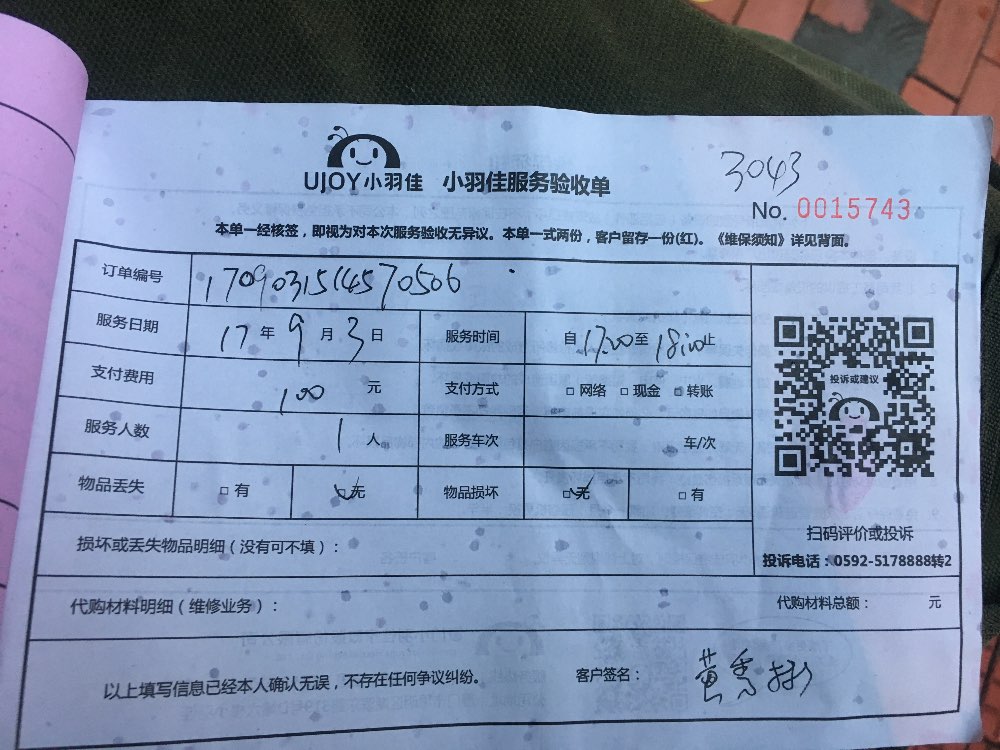 3043
UJOY小羽佳 小羽佳服务验收单
No. 0015743
本单一经核签，即视为对本次服务验收无异议。本单一式两份，客户留存一份(红)。《维保须知》详见背面。
订单编号 170903151457050​6
服务日期 17 年 9 月 3 日 服务时间 自 17:00 至 18:00 止
支付费用 100 元 支付方式 □ 网络 □ 现金 □ 转账
服务人数 1 人 服务车次 车/次
物品丢失 □ 有 □ 无 物品损坏 □ 无 □ 有
投诉或建议
扫码评价或投诉
投诉电话：0592-5178888转2
损坏或丢失物品明细（没有可不填）：
代购材料明细（维修业务）： 代购材料总额： 元
以上填写信息已经本人确认无误，不存在任何争议纠纷。 客户签名： 黄秀